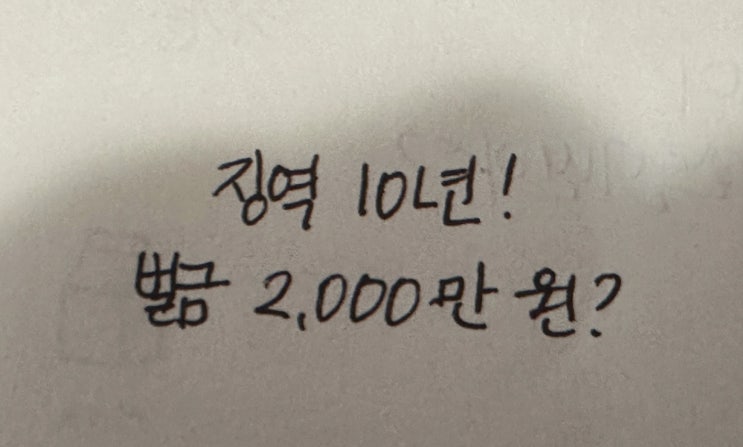 징역 10년!
벌금 2,000만 원?